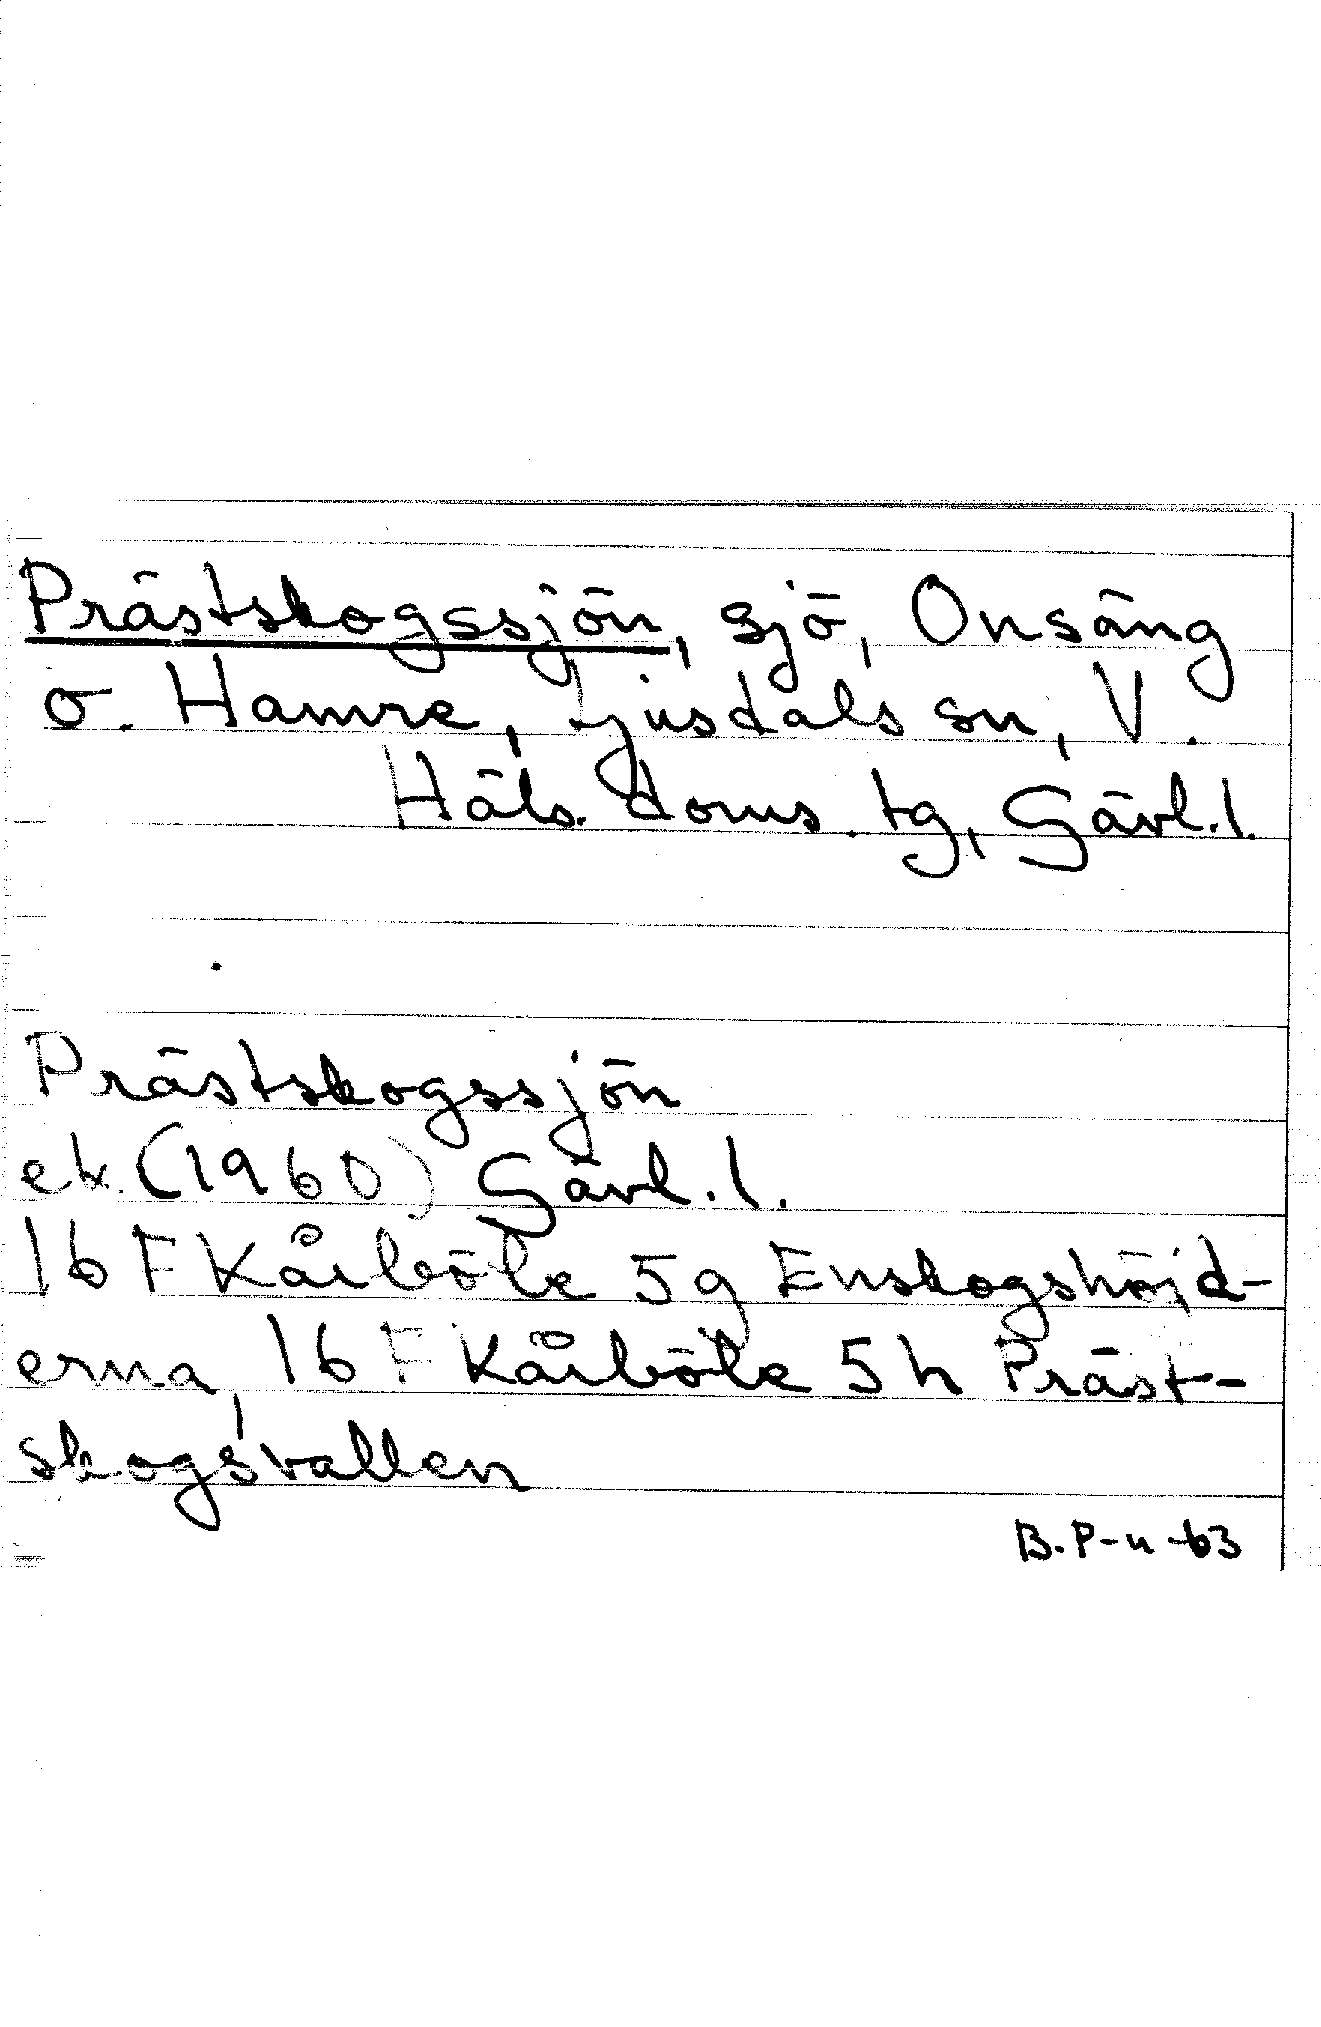 Prästskogssjön, sjö, Onsäng
o. Hamre, Ljusdals sn, V.
Häls. doms. tg, Gävl. l.
Prästskogssjön
ek. (1960) Gävl. l.
16 F Kårböle 5g Enskogshöjd-
erna, 16 F Kårböle 5h Präst-
skogsvallen
B. P-n -63